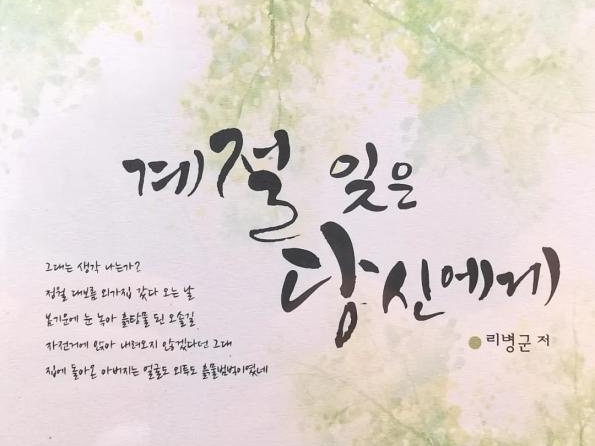 계절 잊은
당신에게
리병군 저
그대는 생각 나는가?
정월 대보름 외가집 갔다 오는 날
봄기운에 눈 녹아 흙탕물 된 오솔길
자전거에 앉아 내려오지 않겠다던 그대
집에 돌아온 아버지는 얼굴도 외투도 흙물범벅이였네